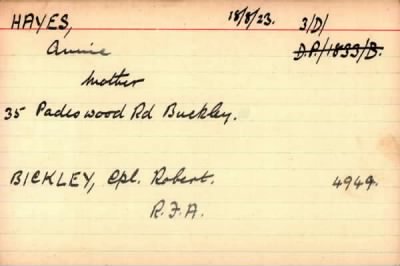 HAYES, 18/8/23. 3/D/
Annie D.P./1833/B.
Mother
35 Padeswood Rd Buckley.
BICKLEY, Cpl. Robert. 4949.
R.F.A.